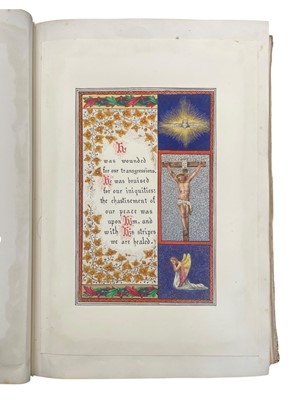 He
was wounded
for our transgressions.
He was bruised
for our iniquities:
the chastisement of
our peace was
upon Him, and
with His stripes
we are healed.